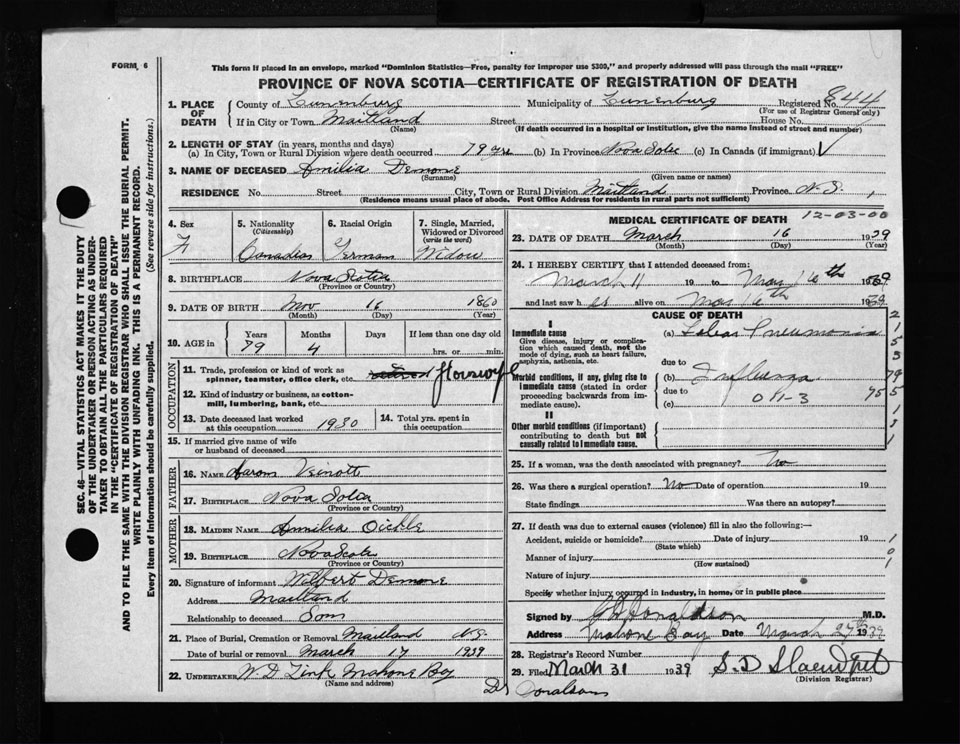 FORM, 6
This form if placed in an envelope, marked "Dominion Statistics—Free, penalty for improper use $300," and properly addressed will pass through the mail "FREE"
PROVINCE OF NOVA SCOTIA—CERTIFICATE OF REGISTRATION OF DEATH
SEC. 46—VITAL STATISTICS ACT MAKES IT THE DUTY
OF THE UNDERTAKER OR PERSON ACTING AS UNDER-
TAKER TO OBTAIN ALL THE PARTICULARS REQUIRED
IN THE "CERTIFICATE OF REGISTRATION OF DEATH"
AND TO FILE THE SAME WITH THE DIVISION REGISTRAR WHO SHALL ISSUE THE BURIAL PERMIT.
WRITE PLAINLY WITH UNFADING INK. THIS IS A PERMANENT RECORD.
Every item of information should be carefully supplied. (See reverse side for instructions.)
1. PLACE OF DEATH County of Lunenburg Municipality of Lunenburg Registered No. 844
(For use of Registrar General only)
If in City or Town Maitland Street House No.
(Name) (If death occurred in a hospital or institution, give the name instead of street and number)
2. LENGTH OF STAY (in years, months and days)
(a) In City, Town or Rural Division where death occurred 79 yrs (b) In Province Nova Scotia (c) In Canada (if immigrant)
3. NAME OF DECEASED Amilia Demone
(Surname) (Given name or names)
RESIDENCE No. Street City, Town or Rural Division Maitland Province N.S.
(Residence means usual place of abode. Post Office Address for residents in rural parts not sufficient)
4. Sex F
5. Nationality (Citizenship) Canadian
6. Racial Origin German
7. Single, Married, Widowed or Divorced (write the word) Widow
8. BIRTHPLACE Nova Scotia
(Province or Country)
9. DATE OF BIRTH Nov 16 1860
(Month) (Day) (Year)
10. AGE in Years 79 Months 4 Days If less than one day old hrs. or min.
OCCUPATION
11. Trade, profession or kind of work as spinner, teamster, office clerk, etc. Housewife
12. Kind of industry or business, as cotton-mill, lumbering, bank, etc.
13. Date deceased last worked at this occupation 1930
14. Total yrs. spent in this occupation
15. If married give name of wife or husband of deceased
FATHER
16. NAME Aaron Veinott
17. BIRTHPLACE Nova Scotia
(Province or Country)
MOTHER
18. MAIDEN NAME Ammilia Oickle
19. BIRTHPLACE Nova Scotia
(Province or Country)
20. Signature of informant Wilbert Demone
Address Maitland
Relationship to deceased Son
21. Place of Burial, Cremation or Removal Maitland N.S.
Date of burial or removal March 17 1939
22. UNDERTAKER W. D. Zink Mahone Bay
(Name and address)
MEDICAL CERTIFICATE OF DEATH
12-03-00
23. DATE OF DEATH March 16 1939
(Month) (Day) (Year)
24. I HEREBY CERTIFY that I attended deceased from:
March 11 19 to Mar 16th 1939
and last saw h er alive on Mar 16th 1939
CAUSE OF DEATH
I
Immediate cause
Give disease, injury or complication which caused death, not the mode of dying, such as heart failure, asphyxia, asthenia, etc.
(a) Lobar Pneumonia
due to
Morbid conditions, if any, giving rise to immediate cause (stated in order proceeding backwards from immediate cause).
(b) Influenza
due to
(c) 011-3
II
Other morbid conditions (if important) contributing to death but not causally related to immediate cause.
25. If a woman, was the death associated with pregnancy? No
26. Was there a surgical operation? No Date of operation 19
State findings Was there an autopsy?
27. If death was due to external causes (violence) fill in also the following:—
Accident, suicide or homicide? Date of injury 19
(State which)
Manner of injury
(How sustained)
Nature of injury
Specify whether injury occurred in industry, in home, or in public place
Signed by Donaldson M.D.
Address Mahone Bay Date March 27th 1939
28. Registrar's Record Number
29. Filed March 31 1939
(Division Registrar)